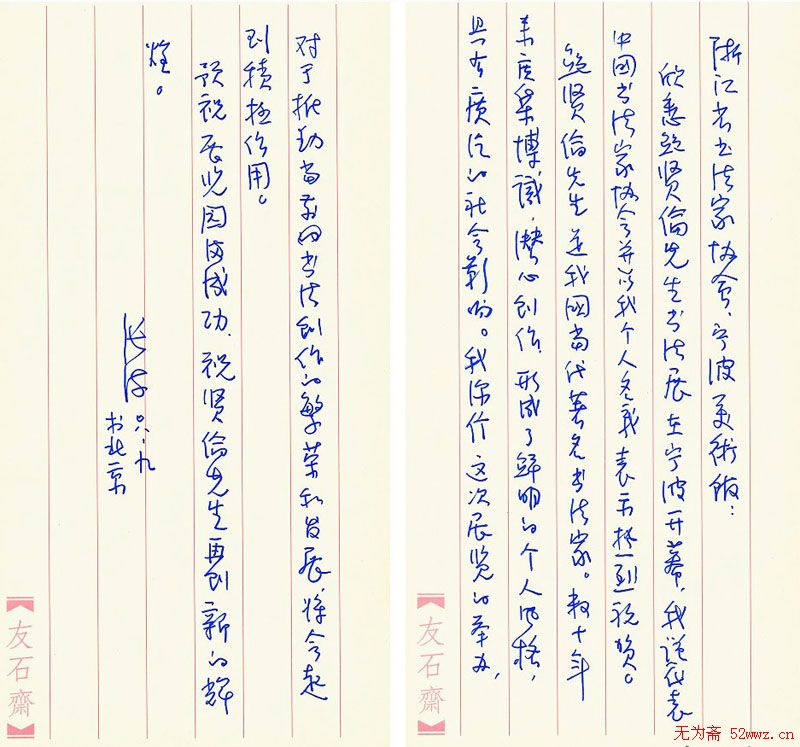 浙江省书法家协会、宁波美術馆：
欣悉鲍贤倫先生书法展在宁波开幕，我谨代表
中國书法家协会并以我个人名义表示热烈祝贺。
鲍贤倫先生是我國当代著名书法家。数十年
来广采博識，潜心创作，形成了鲜明的个人风格，
具有广泛的社会影响。我深信这次展览的举办，
对于推动当前的书法创作的繁荣和发展，将会起
到積极作用。
预祝展览圆满成功，祝贤倫先生再创新的辉
煌。
张海
〇八·九
于北京
友石齋
友石齋
无为斋 52wwz.cn